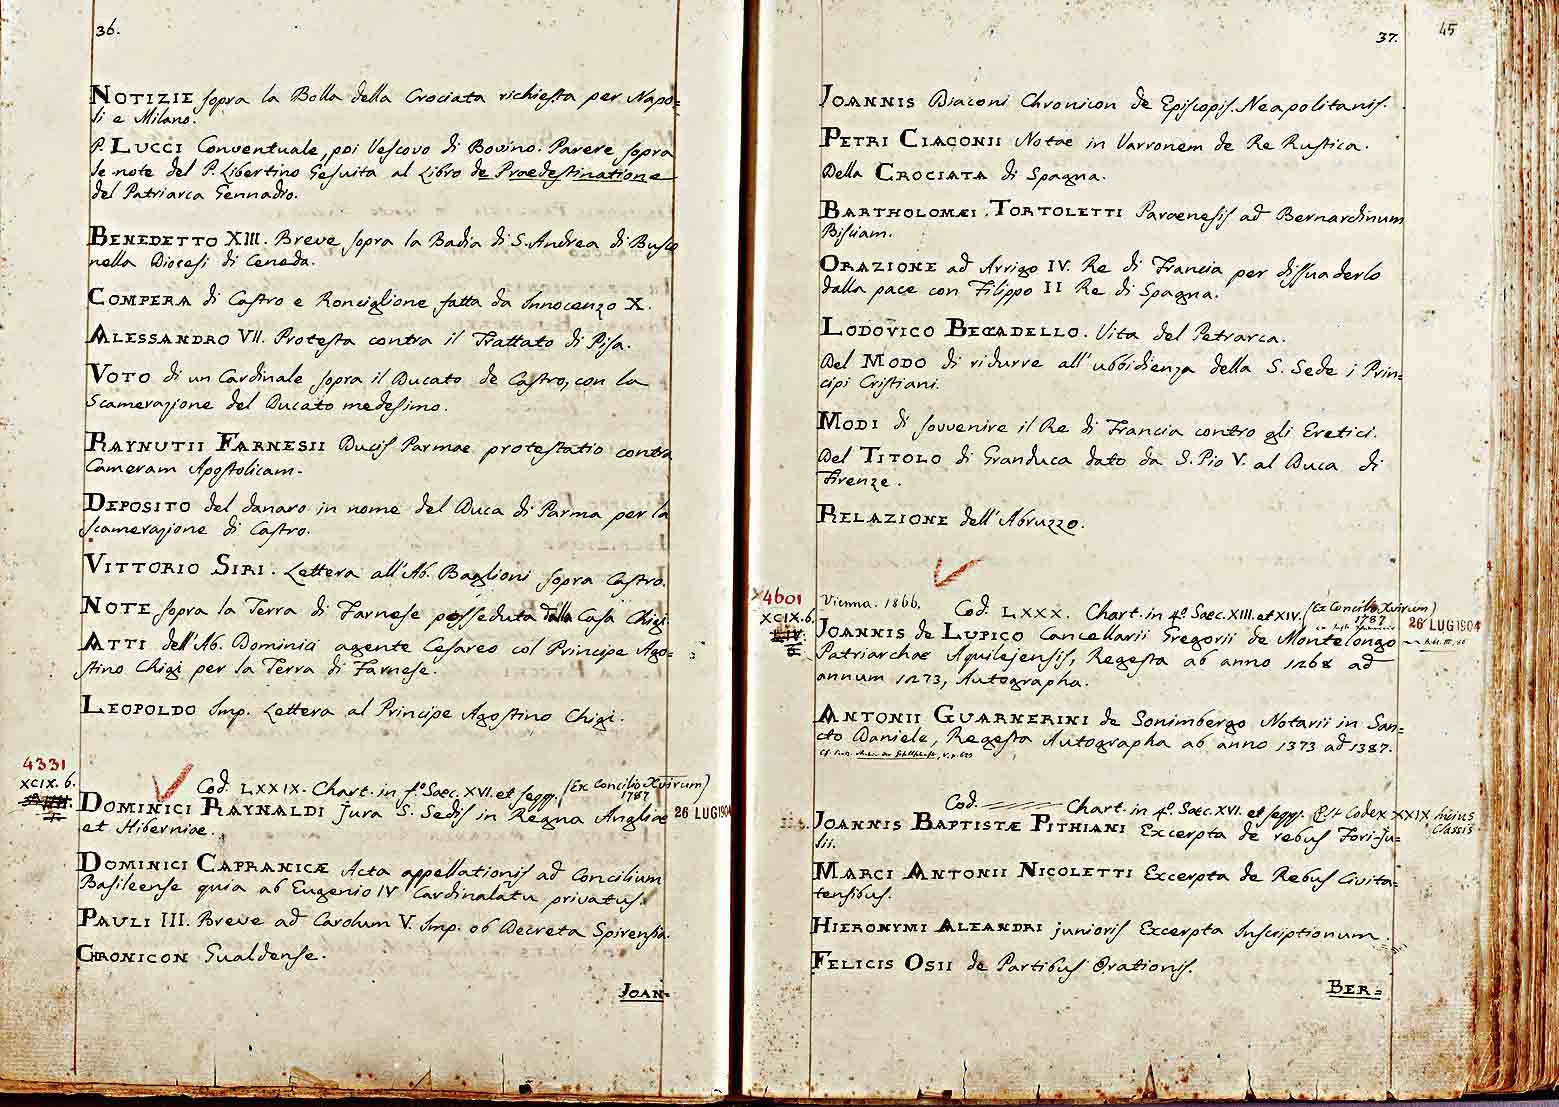 36.
NOTIZIE sopra la Bolla della Crociata richiesta per Napo=
li e Milano.
P. LUCCI Conventuale, poi Vescovo di Bovino. Parere sopra
le note del P. Libertino Gesuita al Libro de Praedestinatione
del Patriarca Gennadio.
BENEDETTO XIII. Breve sopra la Badia di S. Andrea di Busco
nella Diocesi di Ceneda.
COMPERA di Castro e Ronciglione fatta da Innocenzo X.
ALESSANDRO VII. Protesta contra il Trattato di Pisa.
VOTO di un Cardinale sopra il Ducato de Castro, con la
Scamerazione del Ducato medesimo.
RAYNUTII FARNESII Ducis Parmae protestatio contra
Cameram Apostolicam.
DEPOSITO del danaro in nome del Duca di Parma per la
scamerazione di Castro.
VITTORIO SIRI. Lettera all'Ab. Baglioni sopra Castro.
NOTE sopra la Terra di Farnese posseduta dalla Casa Chigi
ATTI dell'Ab. Dominici agente Cesareo col Principe Ago=
stino Chigi per la Terra di Farnese.
LEOPOLDO Imp. Lettera al Principe Agostino Chigi.
4331
XCIX. 6.
Cod. LXXIX. Chart. in f.º Saec. XVI. et seqq. (Ex Concilio Xvirum)
1787
DOMINICI RAYNALDI Jura S. Sedis in Regna Angliae
26 LUG 1904
et Hiberniae.
DOMINICI CAPRANICÆ Acta appellationis ad Concilium
Basileense quia ab Eugenio IV Cardinalatu privatus.
PAULI III. Breve ad Carolum V. Imp. ob Decreta Spirensia.
CHRONICON Gualdense.
JOAN=
37.
45
JOANNIS Diaconi Chronicon de Episcopis Neapolitanis.
PETRI CIACONII Notae in Varronem de Re Rustica.
Della CROCIATA di Spagna.
BARTHOLOMÆI TORTOLETTI Paraenesis ad Bernardinum
Bisciam.
ORAZIONE ad Arrigo IV. Re di Francia per dissuaderlo
dalla pace con Filippo II Re di Spagna.
LODOVICO BECCADELLO. Vita del Petrarca.
Del MODO di ridurre all'ubbidienza della S. Sede i Prin=
cipi Cristiani.
MODI di sovvenire il Re di Francia contro gli Eretici.
Del TITOLO di Granduca dato da S. Pio V. al Duca di
Firenze.
RELAZIONE dell'Abruzzo.
4601
XCIX. 6.
Vienna. 1866.
Cod. LXXX. Chart. in 4.º Saec. XIII. et XIV. (Ex Concilio Xvirum)
1787
26 LUG 1904
JOANNIS de LUPICO Cancellarii Gregorii de Montelongo
Patriarchae Aquilejensis, Regesta ab anno 1268 ad
annum 1273, Autographa.
ANTONII GUARNERINI de Sonimbergo Notarii in San=
cto Daniele, Regesta Autographa ab anno 1373 ad 1387.
Cod. Chart. in 4.º Saec. XVI. et seqq. Est Codex XXIX huius
Classis
JOANNIS BAPTISTÆ PITHIANI Excerpta de rebus Fori-Ju=
lii.
MARCI ANTONII NICOLETTI Excerpta de Rebus Civita=
tensibus.
HIERONYMI ALEANDRI junioris Excerpta Inscriptionum.
FELICIS OSII de Partibus Orationis.
BER=